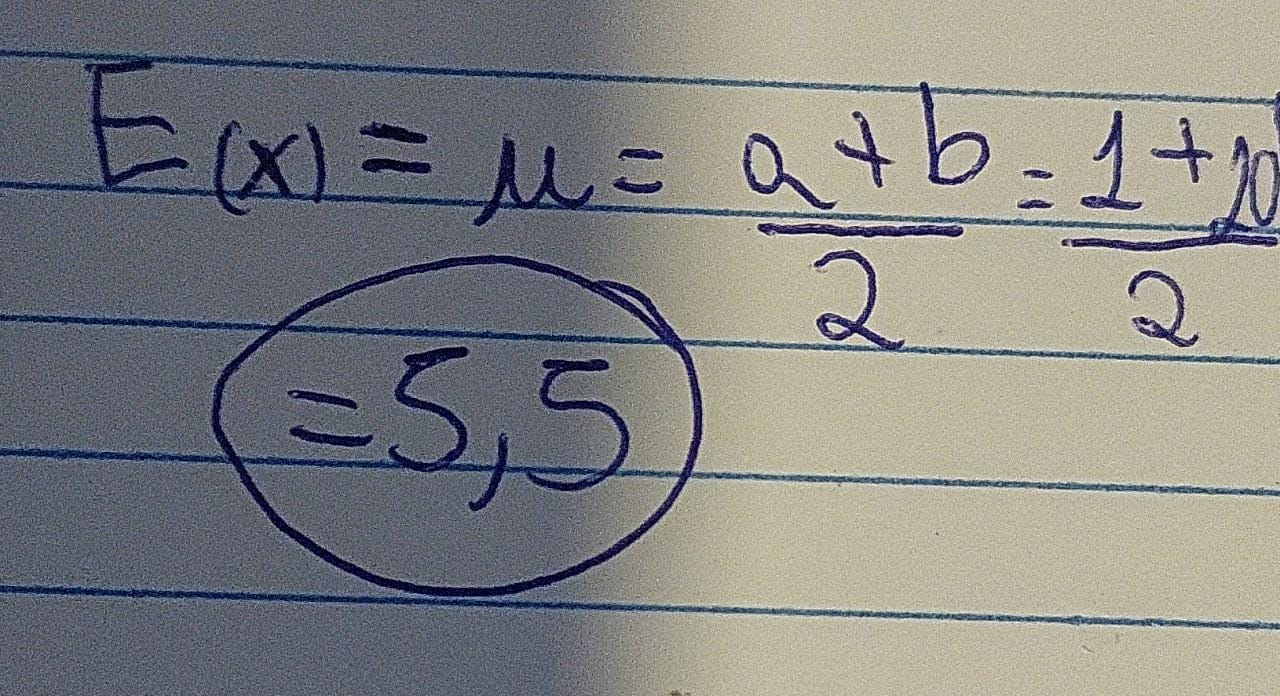 E(x) = μ = a+b/2 = 1+10/2
= 5,5